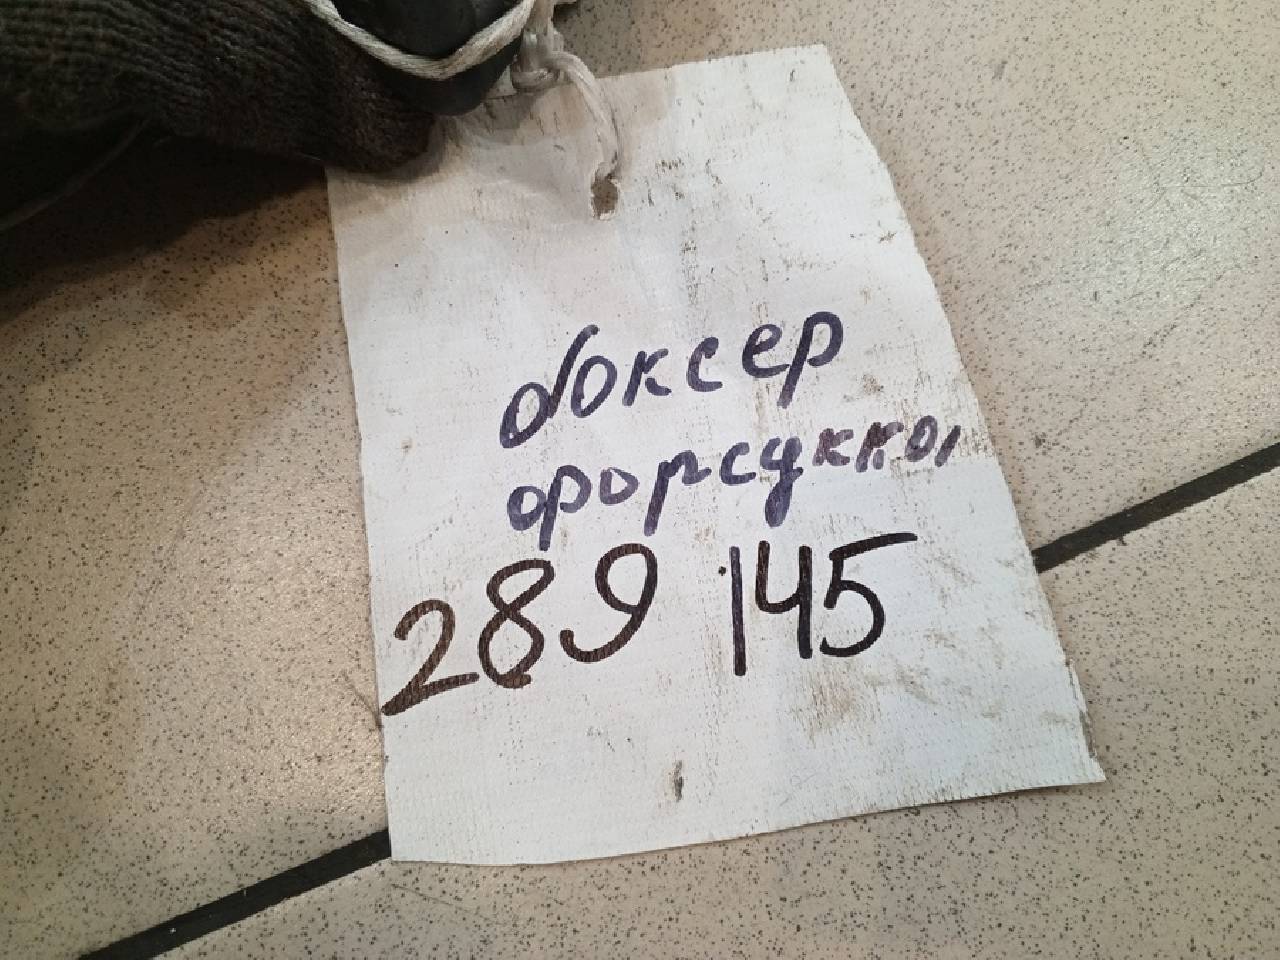 боксер
форсукки
289 145